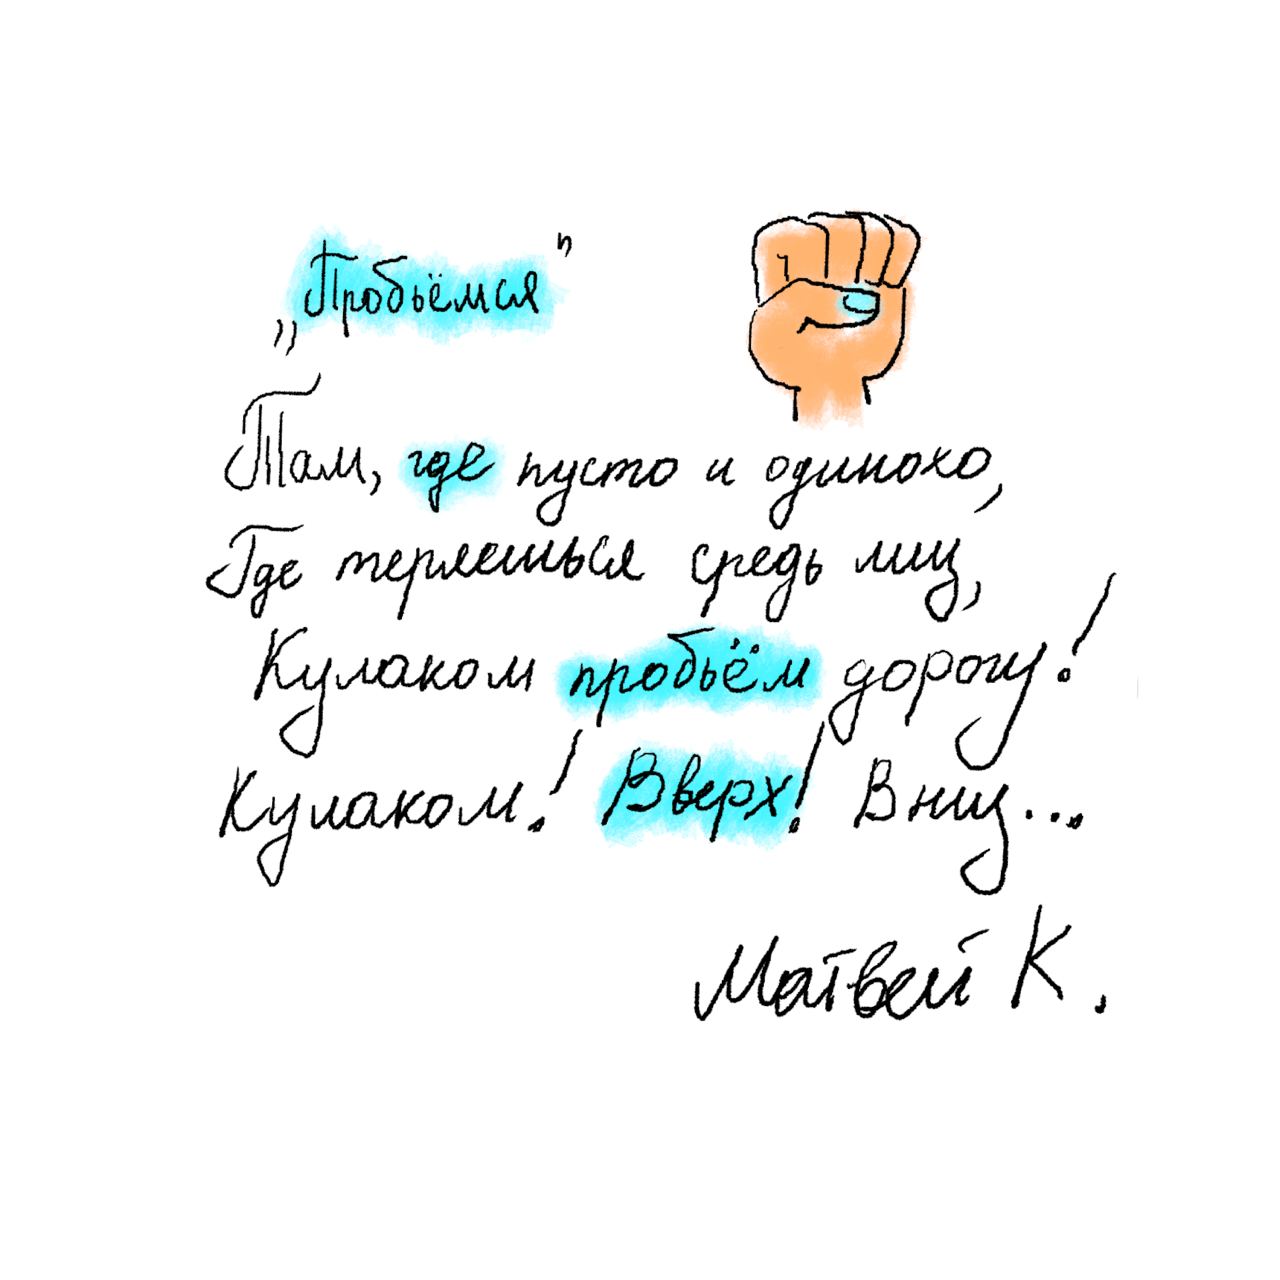 „Пробьёмся"
Там, где пусто и одиноко,
Где теряешься средь лиц,
Кулаком пробьём дорогу!
Кулаком! Вверх! Вниз...
Матвей К.